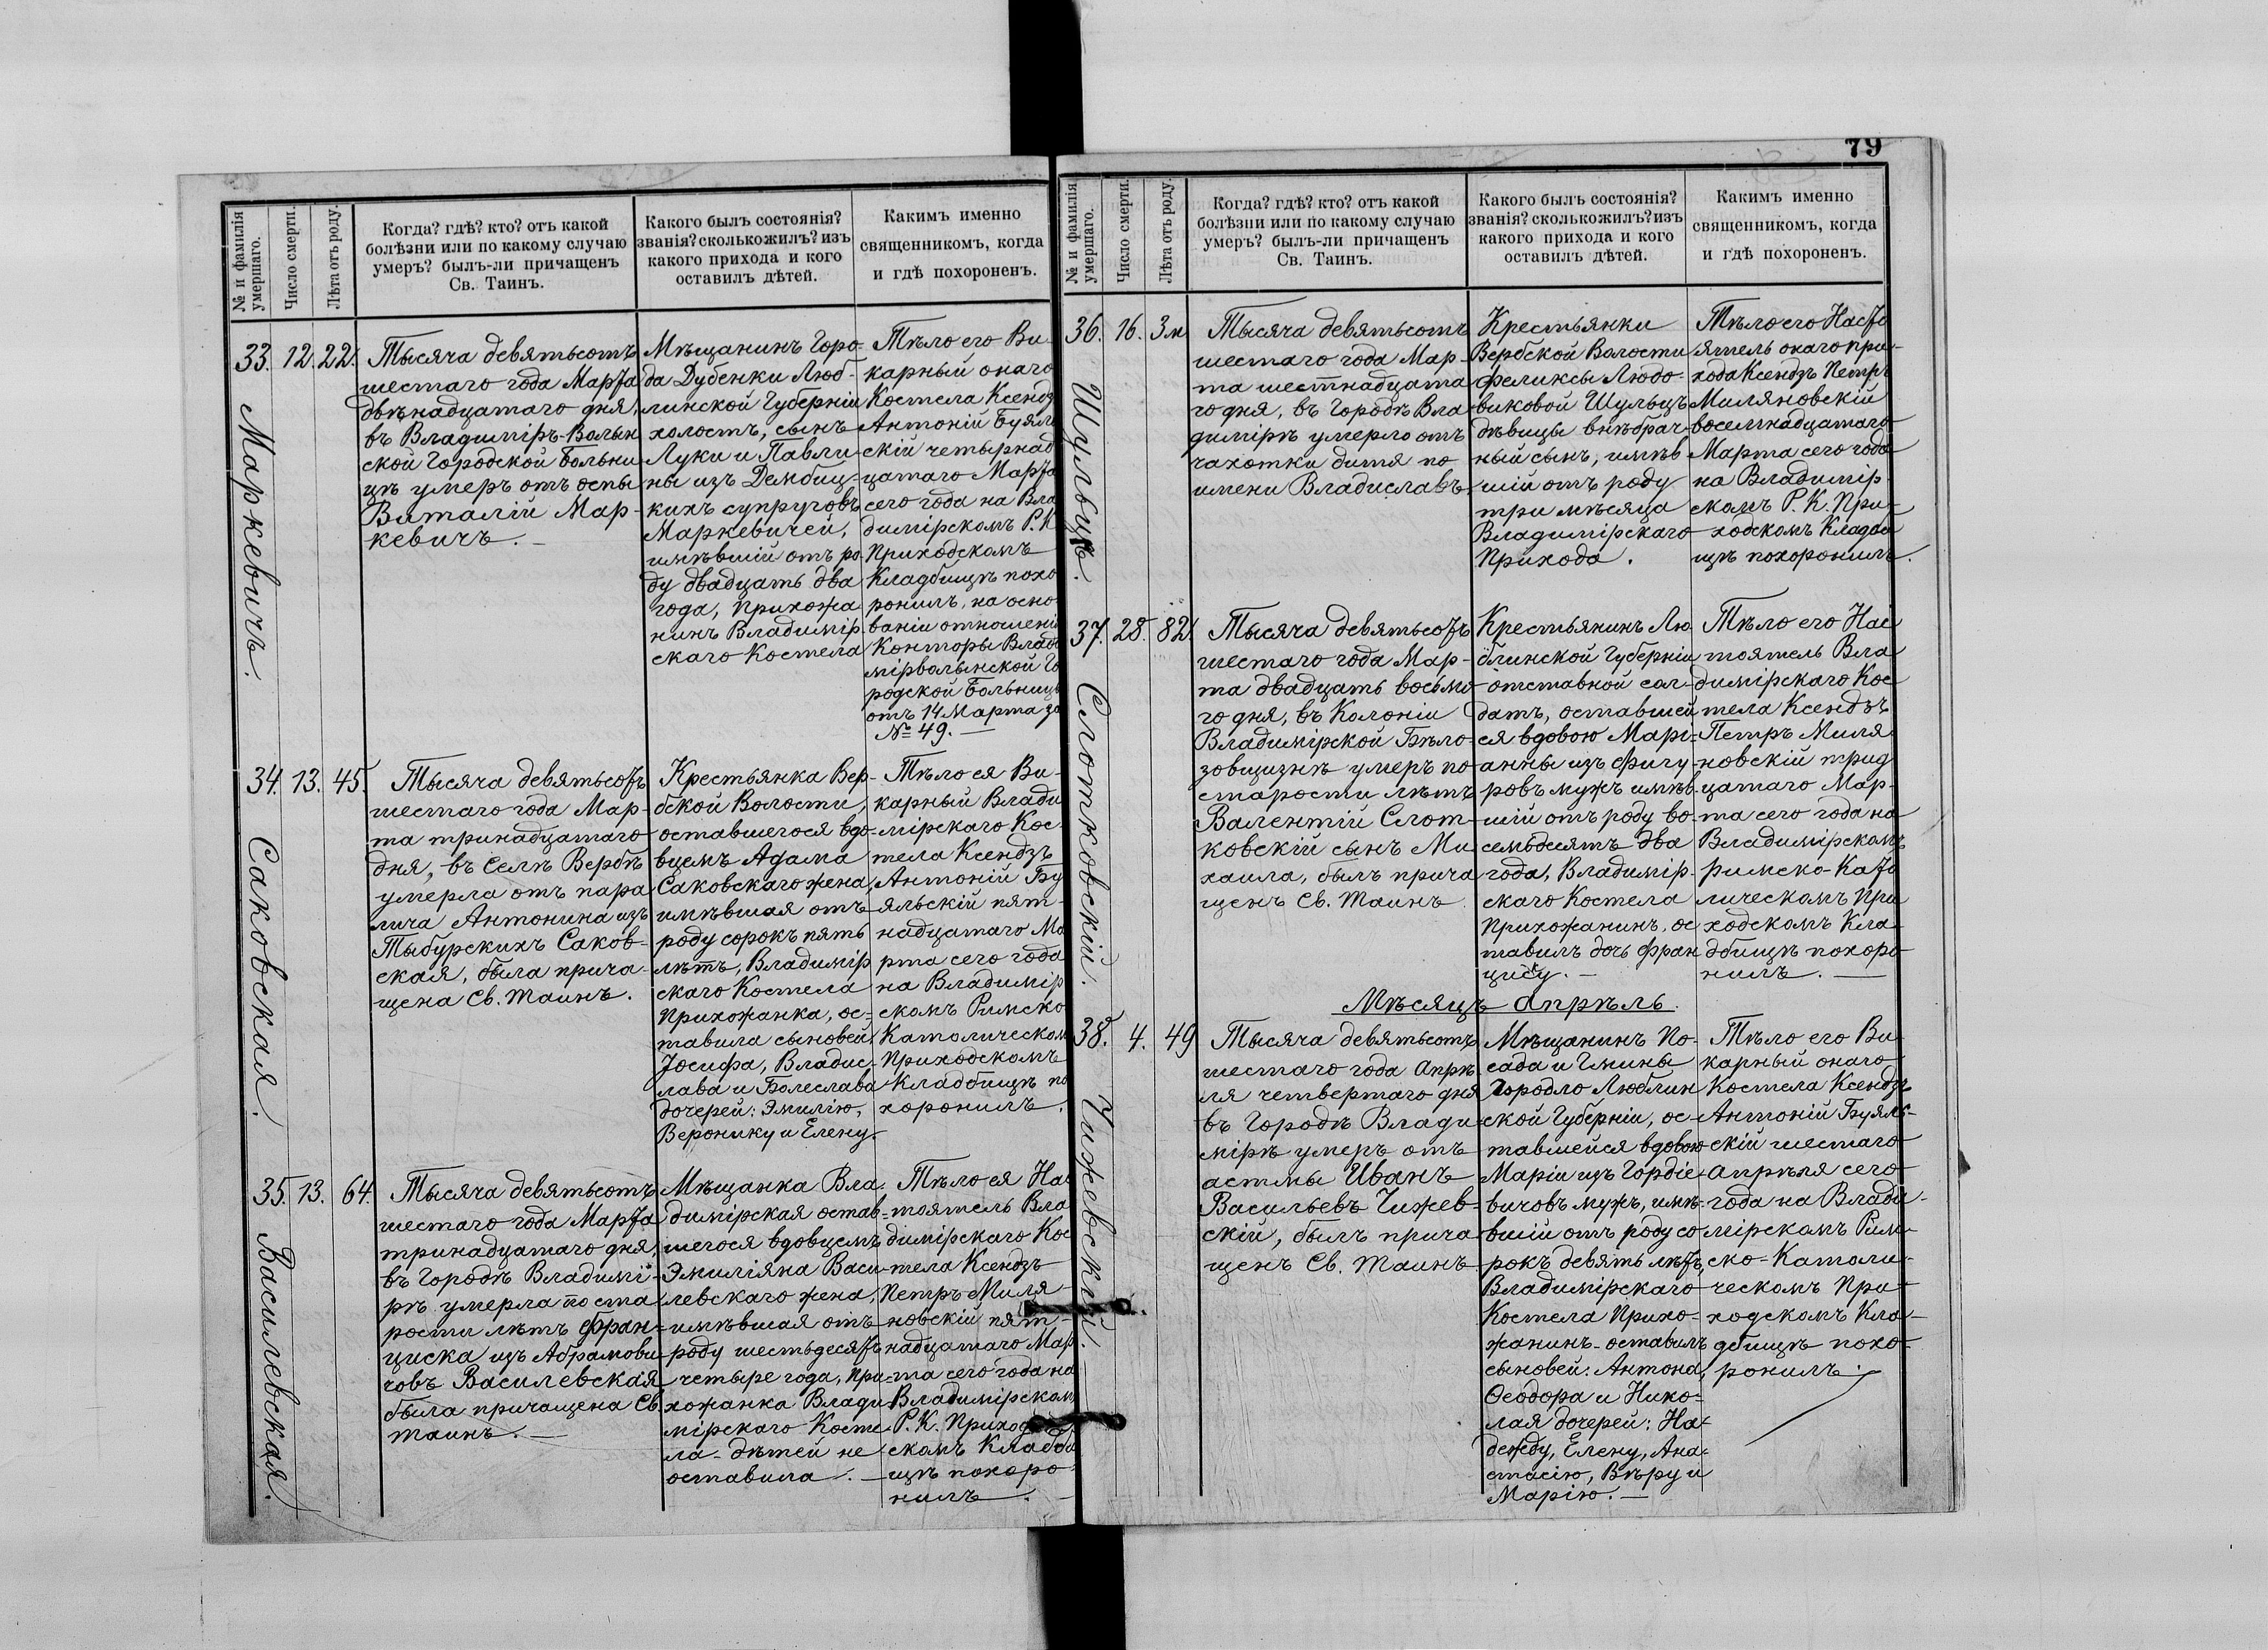 № и фамилія
умершаго.
Число смерти.
Лѣта отъ роду.
Когда? гдѣ? кто? отъ какой
болѣзни или по какому случаю
умеръ? былъ-ли причащенъ
Св. Таинъ.
Какого былъ состоянія?
званія? сколько жилъ? изъ
какого прихода и кого
оставилъ дѣтей.
Какимъ именно
священникомъ, когда
и гдѣ похороненъ.
33.
Маркевичъ.
12.
22.
Тысяча девятьсотъ
шестаго года Марта
двѣнадцатаго дня,
въ Владиміръ-Волын
ской Городской Больни
цѣ умеръ отъ оспы
Виталій Мар-
кевичъ. —
Мѣщанинъ Горо-
да Дубенки Люб-
линской Губерніи
холостъ, сынъ
Луки и Павли-
ны изъ Дембиц-
кихъ супруговъ
Маркевичей,
имѣвшій отъ ро-
ду двадцать два
года, Прихожа
нинъ Владимір-
скаго Костела
Тѣло его Ви-
карный онаго
Костела Ксендз
Антоній Буяль
скій четырнад
цатаго Марта
сего года на Вла
димірскомъ Р. К
Приходскомъ
Кладбищѣ похо
ронилъ, на осно
ваніи отношені
Конторы Влад
мірволынской Го
родской Больницы
отъ 14 Марта за
№ 49. —
34.
Саковская.
13.
45.
Тысяча девятьсотъ
шестаго года Мар-
та тринадцатаго
дня, въ Селѣ Вербѣ
умерла отъ пара
лича Антонина изъ
Тыбурскихъ Саков-
ская, была прича-
щена Св. Таинъ.
Крестьянка Вер-
бской Волости,
оставшегося вдо-
вцемъ Адама
Саковскаго жена,
имѣвшая отъ
роду сорокъ пять
лѣтъ, Владимір
скаго Костела
Прихожанка, ос-
тавила сыновей:
Іосифа, Владис-
лава и Болеслава
дочерей: Эмилію,
Веронику и Елену.
Тѣло ея Ви-
карный Влади
мірскаго Кос-
тела Ксендзъ
Антоній Бу
яльскій пят-
надцатаго Ма
рта сего года
на Владимір
скомъ Римско
Католическом
Приходскомъ
Кладбищѣ по
хоронилъ.
35.
Василевская.
13.
64.
Тысяча девятьсотъ
шестаго года Марта
тринадцатаго дня,
въ Городѣ Владимі-
рѣ умерла по ста
рости лѣтъ Фран-
циска изъ Абрамови
човъ Василевская
была причащена Св.
Таинъ. —
Мѣщанка Вла
димірская остав-
шегося вдовцемъ
Эмиліяна Васи-
левскаго жена,
имѣвшая отъ
роду шестьдесятъ
четыре года, При-
хожанка Влади
мірскаго Косте
ла - дѣтей не
оставила. —
Тѣло ея На
тоятель Вла
димірскаго Кос
тела Ксендзъ
Петръ Миля
новскій пят-
надцатаго Мар
та сего года на
Владимірском
Р. К. Приход
скомъ Кладби
щѣ похоро-
нилъ. —
79
№ и фамилія
умершаго.
Число смерти.
Лѣта отъ роду.
Когда? гдѣ? кто? отъ какой
болѣзни или по какому случаю
умеръ? былъ-ли причащенъ
Св. Таинъ.
Какого былъ состоянія?
званія? сколько жилъ? изъ
какого прихода и кого
оставилъ дѣтей.
Какимъ именно
священникомъ, когда
и гдѣ похороненъ.
36.
Шульцъ.
16.
3 м
Тысяча девятьсотъ
шестаго года Мар-
та шестнадцата
го дня, въ Городѣ Вла
димірѣ умерло отъ
чахотки дитя по
имени Владиславъ
Крестьянки
Вербской Волости
Феликсы Людо-
виковой Шульцъ
дѣвицы внѣбрач-
ный сынъ, имѣв
шій отъ роду
три мѣсяца
Владимірскаго
Прихода.
Тѣло его Насто
ятель онаго при-
хода Ксендзъ Петръ
Миляновскій
восемнадцатаго
Марта сего года
на Владимір-
скомъ Р. К. При-
ходскомъ Кладби
щѣ похоронилъ.
37.
Слотковскій.
28.
82.
Тысяча девятьсотъ
шестаго года Мар-
та двадцать восьмо
го дня, въ Колоніи
Владимірской Бѣло-
зовщизнѣ умеръ по
старости лѣтъ
Валентій Слот-
ковскій сынъ Ми
хаила, былъ прича
щенъ Св. Таинъ
Крестьянинъ Лю
блинской Губерніи
отставной сол-
датъ, оставшей
ся вдовою Марі-
анны изъ Фигу-
ровъ мужъ имѣв
шій отъ роду во-
семьдесятъ два
года, Владимір-
скаго Костела
Прихожанинъ, ос
тавилъ дочь Фран
циску. —
Тѣло его Нас
тоятель Вла
димірскаго Кос
тела Ксендзъ
Петръ Миля
новскій трид
цатаго Мар-
та сего года на
Владимірскомъ
Римско-Като
лическомъ При
ходскомъ Кла-
дбищѣ похоро
нилъ. —
Мѣсяцъ Апрѣль.
38.
Чижевскій.
4.
49
Тысяча девятьсотъ
шестаго года Апрѣ
ля четвертаго дня
въ Городѣ Влади-
мірѣ умеръ отъ
астмы Иванъ
Васильевъ Чижев-
скій, былъ прича
щенъ Св. Таинъ
Мѣщанинъ По-
сада и Гмины
Городло Люблин
ской Губерніи, ос-
тавшейся вдовою
Маріи изъ Гордіе-
вичовъ мужъ, имѣ-
вшій отъ роду со
рокъ девять лѣтъ,
Владимірскаго
Костела Прихо-
жанинъ - оставилъ
сыновей: Антона,
Ѳеодора и Нико-
лая дочерей: На-
дежду, Елену, Ана-
стасію, Вѣру и
Марію. —
Тѣло его Ви-
карный онаго
Костела Ксендзъ
Антоній Буяль-
скій шестаго
Апрѣля сего
года на Влади-
мірскомъ Рим-
ско-Католи-
ческомъ При
ходскомъ Кла-
дбищѣ похо-
ронилъ.